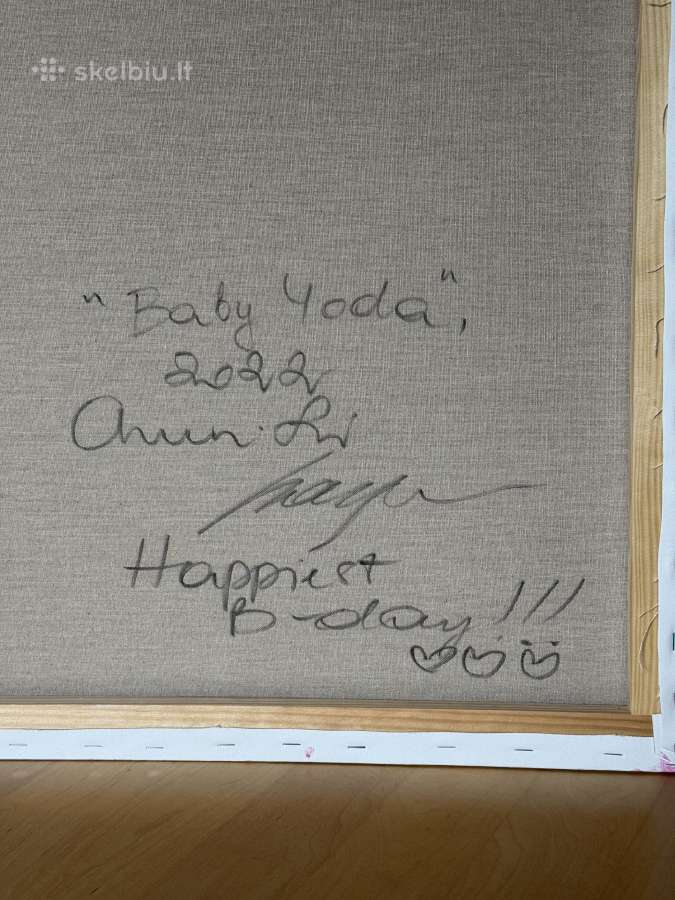 skelbiu.lt
"Baby Yoda",
2022
Chun·Li
Happiest
B-day!!!